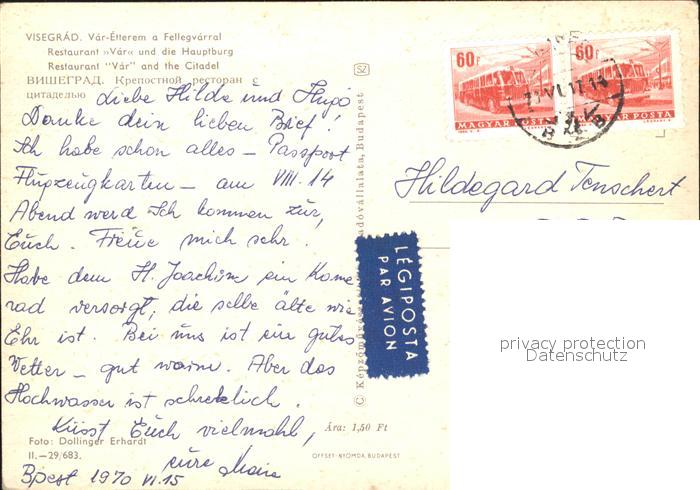 VISEGRÁD. Vár-Étterem a Fellegvárral
Restaurant »Vár« und die Hauptburg
Restaurant "Vár" and the Citadel
ВИШЕГРАД. Крепостной ресторан с
цитаделью
Liebe Hilde und Hugo
Danke dein lieben Brief!
Ich habe schon alles – Passport
Flugzeugkarten – am VIII. 14
Abend werd Ich kommen zur,
Euch. Freue mich sehr.
Habe dem H. Joachim ein Kame
rad versorgt, die selbe älte wie
Ehr ist. Bei uns ist ein gutes
Wetter – gut warm. Aber das
Hochwasser ist schrecklich.
Küsst Euch vielmahl,
eure
Bpest 1970 VI. 15
Foto: Dollinger Erhardt
II.—29/683.
Ára: 1,50 Ft
OFFSET-NYOMDA, BUDAPEST
SZ
© Képzőművészeti Budapest
60f
60f
MAGYAR POSTA
MAGYAR POSTA
Hildegard Tenschert
LÉGIPOSTA
PAR AVION
privacy protection
Datenschutz